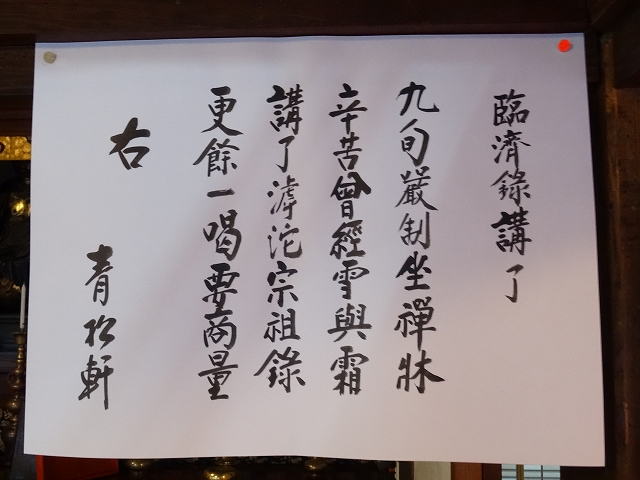 臨濟錄講了
九旬嚴制坐禪牀
辛苦曾經雪與霜
講了滹沱宗祖錄
更餘一喝要商量
右
青松軒